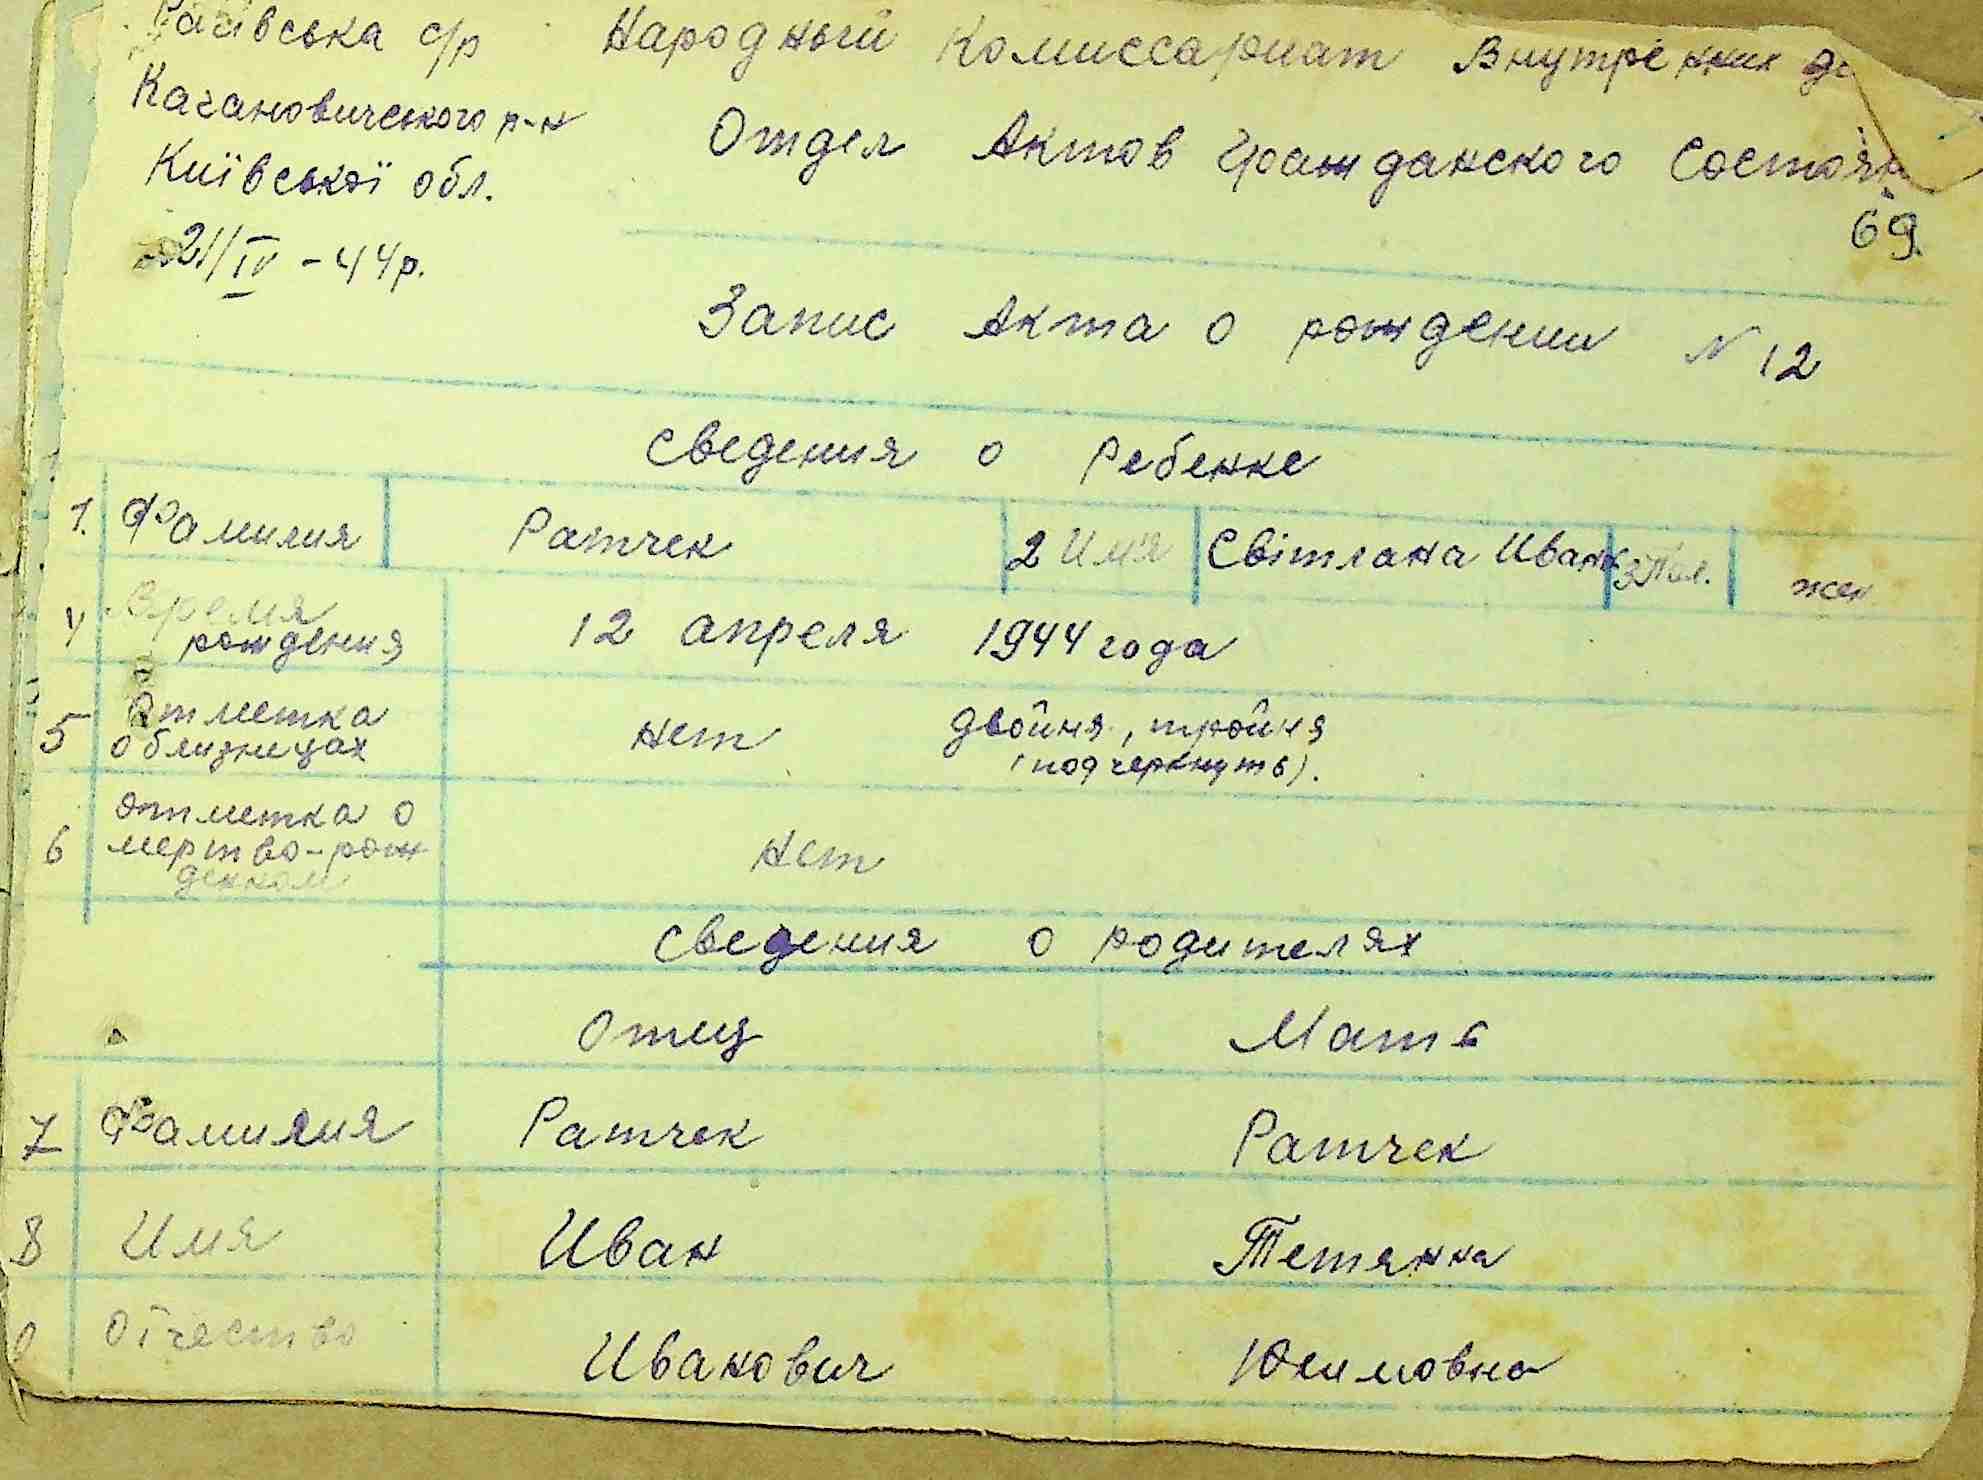 Рачівська с/р
Кагановичского р-н
Київської обл.
21/IV - 44р.
Народный Комиссариат Внутрених
Отдел Актов Гражданского Состоян
69
Запис Акта о рождении N 12
Сведения о Ребенке
1. Фамилия Ратчек 2 Имя Світлана Иван 3 Пол. жен
4 Время рождения 12 апреля 1944 года
5 Отметка о близнецах нет двойня, тройня
(подчеркнуть).
6 Отметка о мертво-рож
денном нет
Сведения о родителях
Отец Мать
7 Фамилия Ратчек Ратчек
8 Имя Иван Тетянна
Отчество Иванович Юхимовна